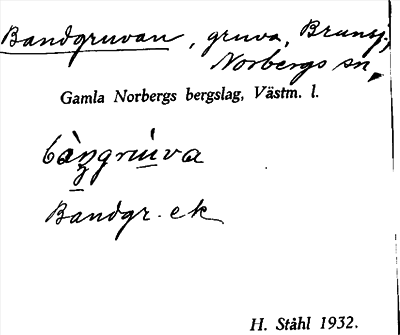 Bandgruvan, gruva, Brunsj.,
Norbergs sn,
Gamla Norbergs bergslag, Västm. l.
bàngrúva
Bandgr. ek
H. Ståhl 1932.